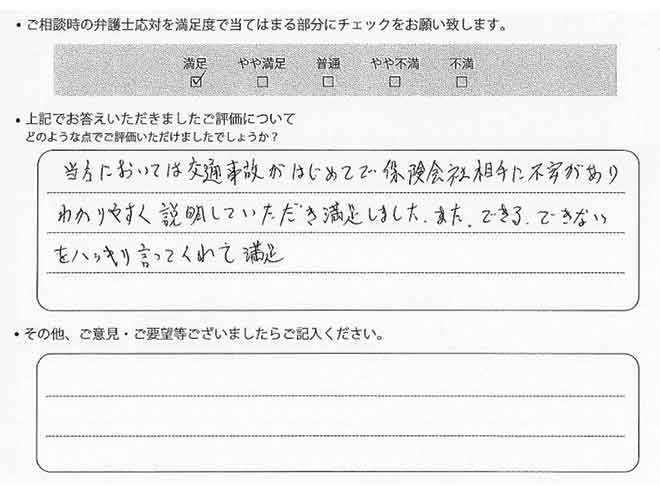 ・ご相談時の弁護士応対を満足度で当てはまる部分にチェックをお願い致します。
満足 やや満足 普通 やや不満 不満
☑ □ □ □ □
・上記でお答えいただきましたご評価について
どのような点でご評価いただけましたでしょうか？
当方においては交通事故がはじめてで保険会社相手に不安があり
わかりやすく説明していただき満足しました。また、できる、できない
をハッキリ言ってくれて満足
・その他、ご意見・ご要望等ございましたらご記入ください。